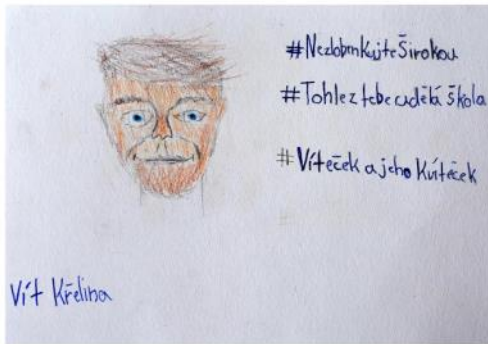 #NezlobrnkujteŠirokou
#Tohle z tebe udělá škola
#Víteček a jeho Kvíteček
Vít Křelina